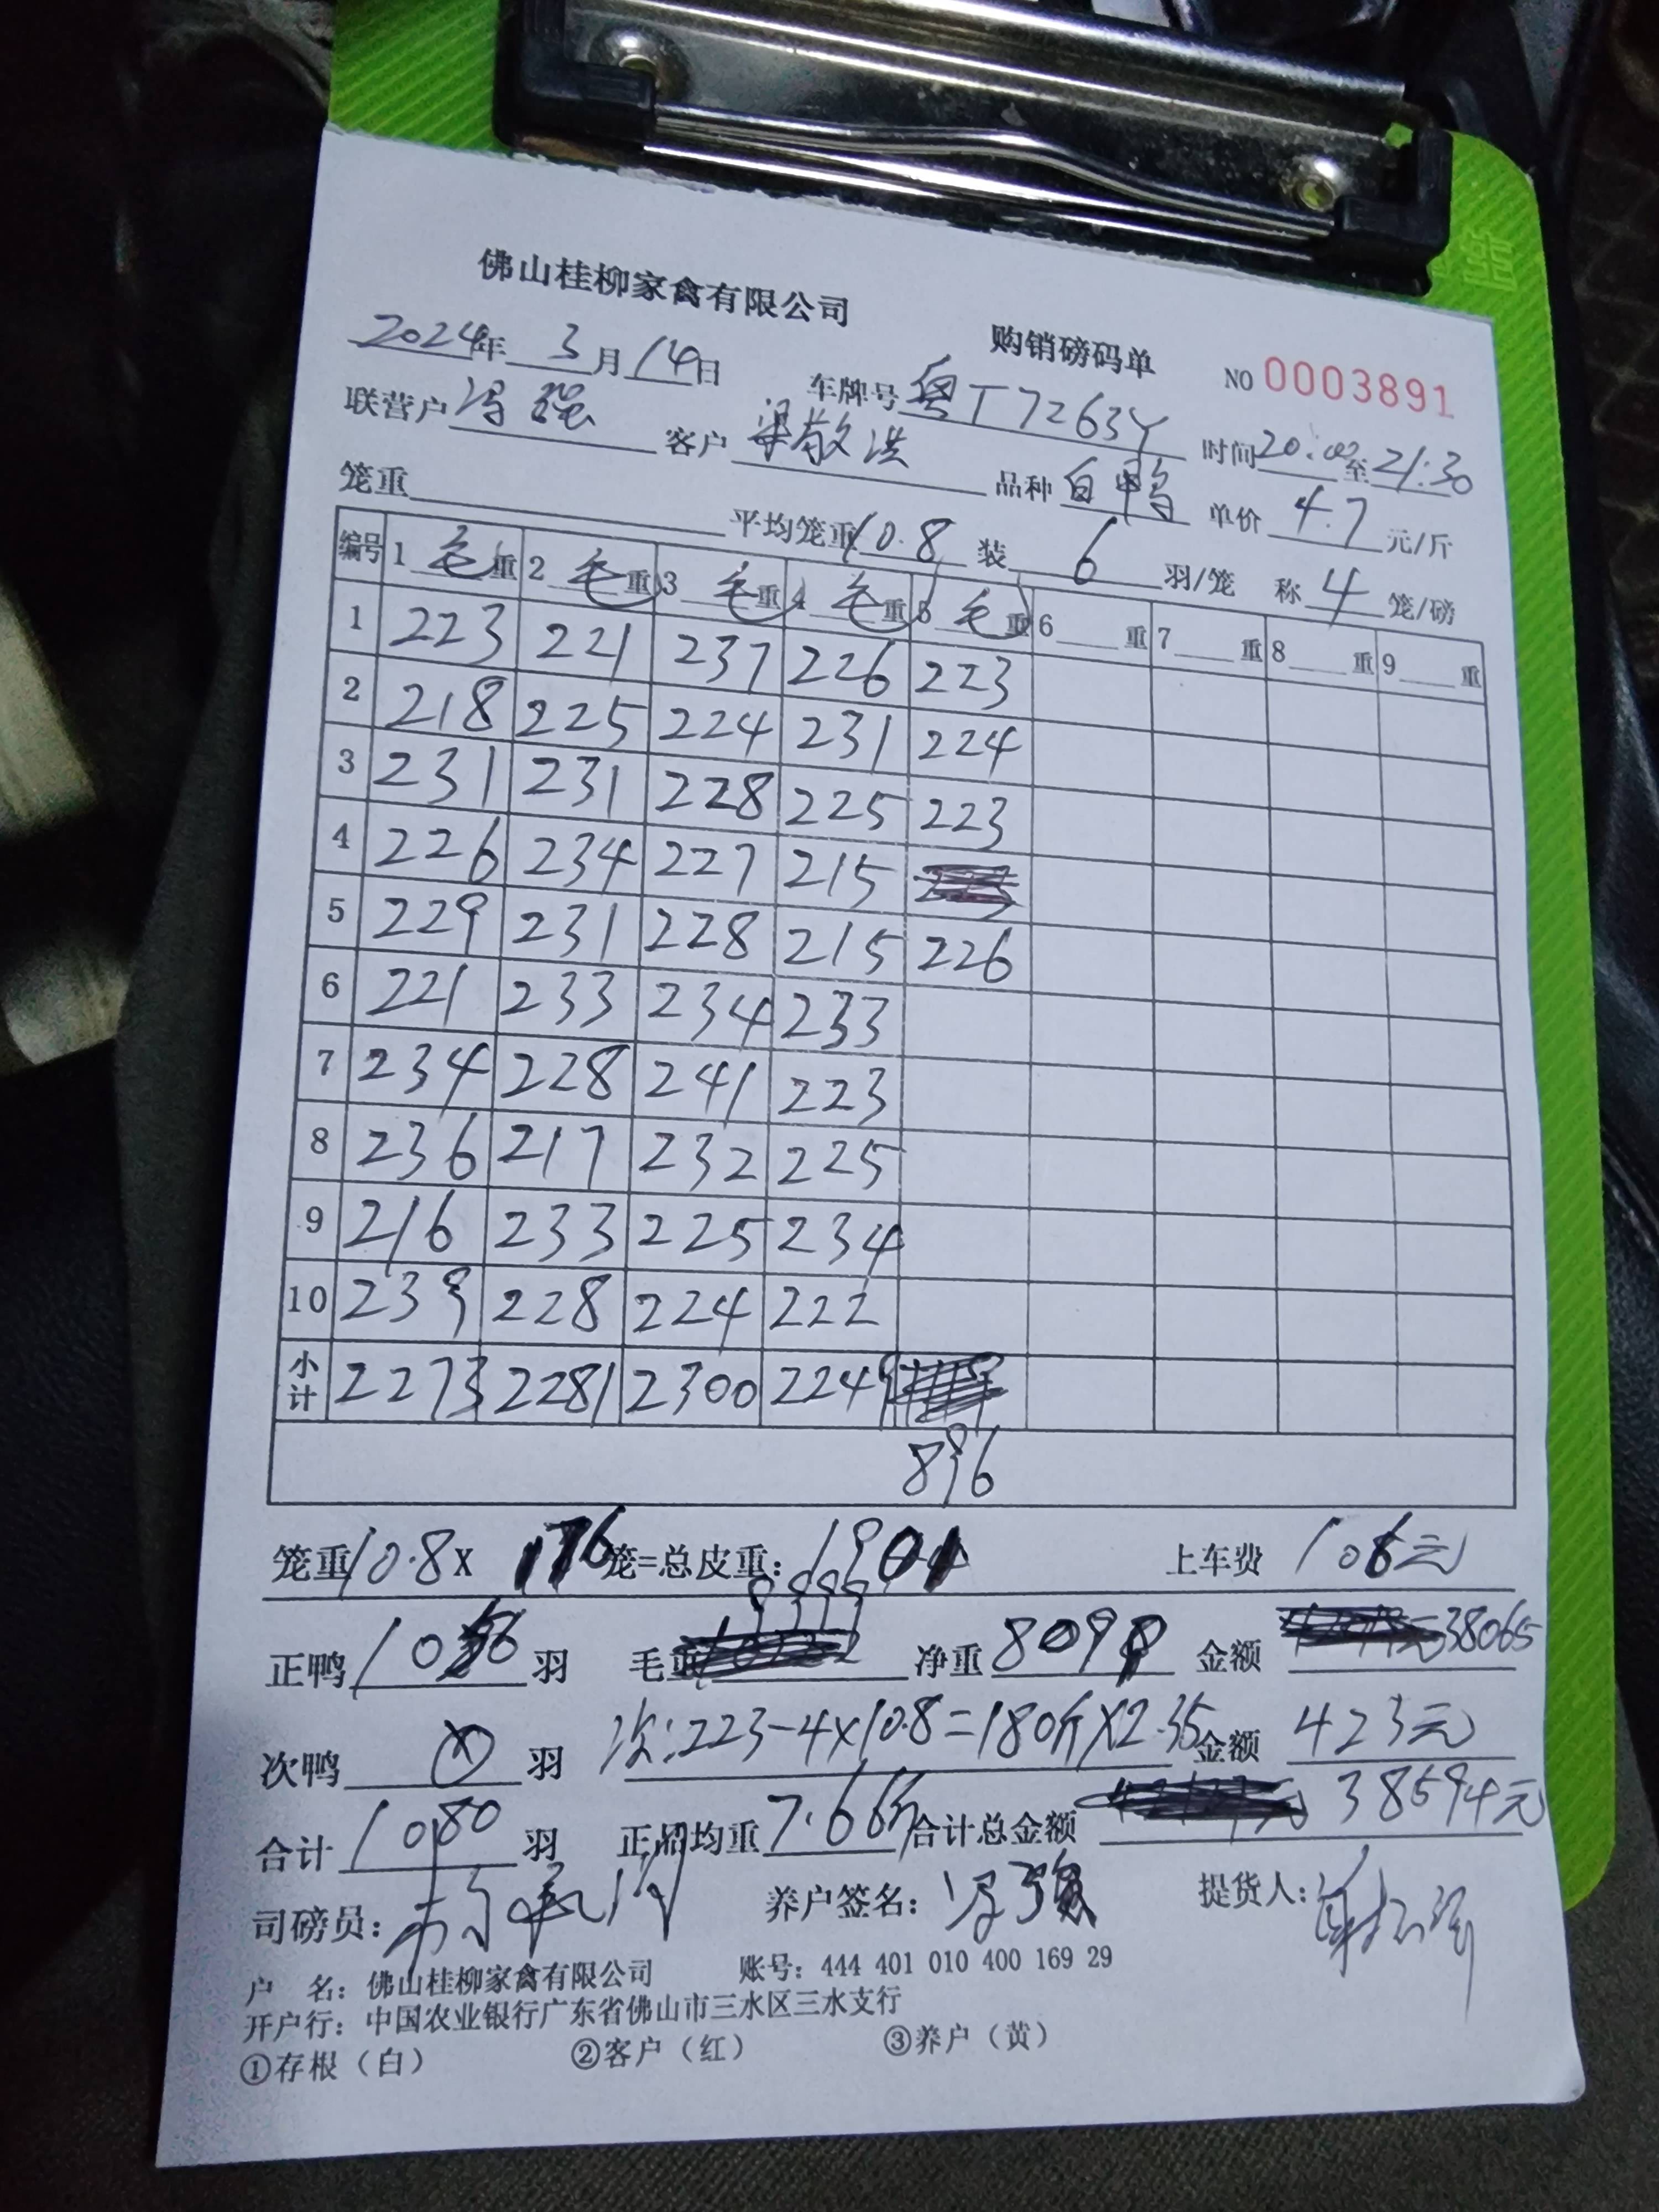 佛山桂柳家禽有限公司 购销磅码单 NO 0003891
2024年 3月14日 车牌号 粤T7263Y 时间20:00至21:30
联营户 冯强 客户 梁敬洪 品种 白鸭 单价 4.7 元/斤
笼重 平均笼重10.8 装 6 羽/笼 称 4 笼/磅
编号 1 毛重 2 毛重 3 毛重 4 毛重 5 毛重 6 重 7 重 8 重 9 重
1 223 221 237 226 223
2 218 225 224 231 224
3 231 231 228 225 223
4 226 234 227 215
5 229 231 228 215 226
6 221 233 234 233
7 234 228 241 223
8 236 217 232 225
9 216 233 225 234
10 239 228 224 222
小计 2273 2281 2300 2249
896
笼重10.8X 176笼=总皮重: 1901 上车费 108元
正鸭 1056 羽 毛重 9999 净重 8098 金额 38065
次鸭 羽 次:223-4×10.8=180斤×2.35 金额 423元
合计 1080 羽 正品均重 7.66斤 合计总金额 38594元
司磅员: 养户签名: 冯强 提货人:
户 名: 佛山桂柳家禽有限公司 账号: 444 401 010 400 169 29
开户行: 中国农业银行广东省佛山市三水区三水支行
①存根(白) ②客户(红) ③养户(黄)